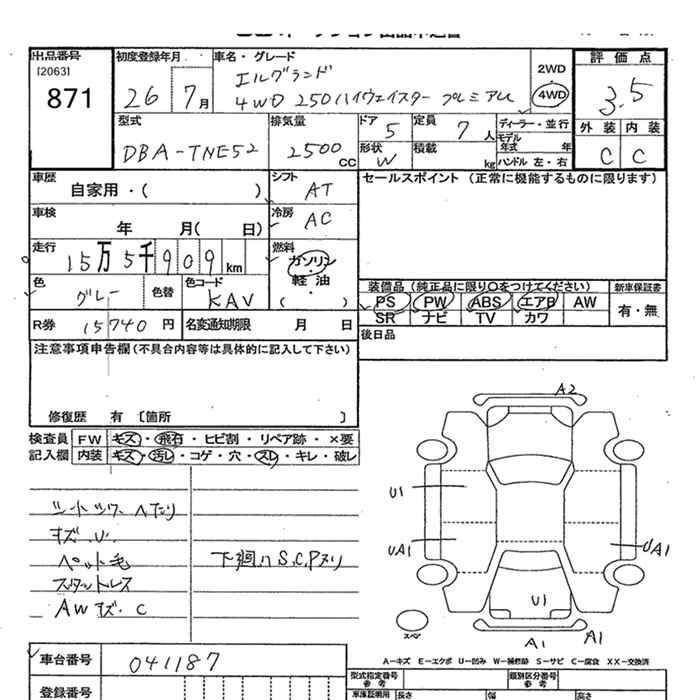 出品番号
[2063]
871
初度登録年月
26 7月
車名・グレード
エルグランド
4WD 250ハイウェイスター プレミアム
2WD
4WD
評価点
3.5
外装 内装
C C
型式
DBA-TNE52
排気量
2500cc
ドア 5
定員 7人
形状 W
積載 kg
ディーラー・並行
モデル年式 年
ハンドル 左・右
車歴
自家用・( )
シフト
AT
セールスポイント (正常に機能するものに限ります)
車検
年 月( 日)
冷房
AC
走行
15万5千909km
燃料
ガソリン
軽油
( )
色
グレー
色替
色コード
KAV
装備品(純正品に限り〇をつけてください)
PS PW ABS エアB AW
SR ナビ TV カワ
新車保証書
有・無
R券 15740円
名変通知期限 月 日
後日品
注意事項申告欄(不具合内容等は具体的に記入して下さい)
修復歴 有 〔箇所 〕
検査員記入欄
FW キズ・飛石・ヒビ割・リペア跡・×要
内装 キズ・汚レ・コゲ・穴・スレ・キレ・破レ
シートシワ ヘたり
キズ.U.
ペット毛
スタットレス
AWキズ.C
下廻りS.C.Pヌリ
A2
U1
UA1
UA1
U1
A1
A1
スペア
A-キズ E-エクボ U-凹み W-補修跡 S-サビ C-腐食 XX-交換済
車台番号
041187
登録番号
型式指定番号
参考
類別区分番号
参考
車庫証明用
長さ
幅
高さ